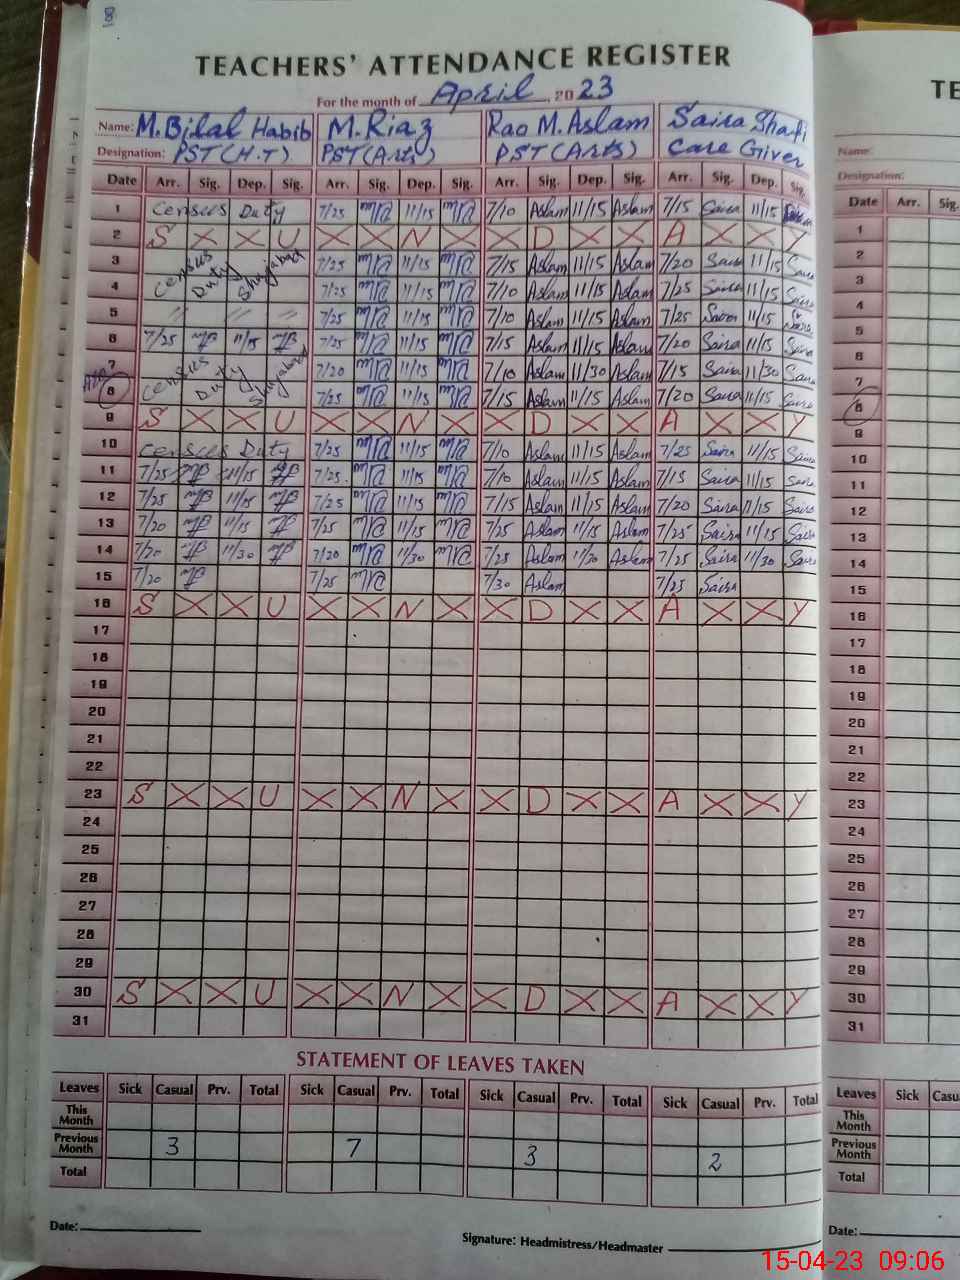 8
TEACHERS' ATTENDANCE REGISTER
For the month of April, 2023
Name: M.Bilal Habib M.Riaz Rao M.Aslam Saira Shafi
Designation: PST(H.T) PST(Arts) PST(Arts) Care Giver
Date Arr. Sig. Dep. Sig. Arr. Sig. Dep. Sig. Arr. Sig. Dep. Sig. Arr. Sig. Dep. Sig.
1 Census Duty 7/25 11/15 7/10 Aslam 11/15 Aslam 7/15 Saira 11/15
2 S X X U X X N X X D X X A X X Y
3 Census Duty Shujabad 7/25 11/15 7/15 Aslam 11/15 Aslam 7/20 Saira 11/15 Saira
4 7/25 11/15 7/10 Aslam 11/15 Aslam 7/25 Saira 11/15 Saira
5 " " " 7/25 11/15 7/10 Aslam 11/15 Aslam 7/25 Saira 11/15 Saira
6 7/25 11/15 7/25 11/15 7/15 Aslam 11/15 Aslam 7/20 Saira 11/15 Saira
7 Census Duty Shujabad 7/20 11/15 7/10 Aslam 11/30 Aslam 7/15 Saira 11/30 Saira
8 7/25 11/15 7/15 Aslam 11/15 Aslam 7/20 Saira 11/15 Saira
9 S X X U X X N X X D X X A X X Y
10 Census Duty 7/25 11/15 7/10 Aslam 11/15 Aslam 7/25 Saira 11/15 Saira
11 7/25 11/15 7/25 11/15 7/10 Aslam 11/15 Aslam 7/15 Saira 11/15 Saira
12 7/25 11/15 7/25 11/15 7/15 Aslam 11/15 Aslam 7/20 Saira 11/15 Saira
13 7/20 11/15 7/25 11/15 7/25 Aslam 11/15 Aslam 7/25 Saira 11/15 Saira
14 7/20 11/30 7/20 11/30 7/25 Aslam 11/30 Aslam 7/25 Saira 11/30 Saira
15 7/20 7/25 7/30 Aslam 7/25 Saira
16 S X X U X X N X X D X X A X X Y
17
18
19
20
21
22
23 S X X U X X N X X D X X A X X Y
24
25
26
27
28
29
30 S X X U X X N X X D X X A X X Y
31
STATEMENT OF LEAVES TAKEN
Leaves Sick Casual Prv. Total Sick Casual Prv. Total Sick Casual Prv. Total Sick Casual Prv. Total
This Month
Previous Month 3 7 3 2
Total
Date:
Signature: Headmistress/Headmaster
TE
Name:
Designation:
Date Arr. Sig.
1
2
3
4
5
6
7
8
9
10
11
12
13
14
15
16
17
18
19
20
21
22
23
24
25
26
27
28
29
30
31
Leaves Sick Casu
This Month
Previous Month
Total
Date:
15-04-23 09:06